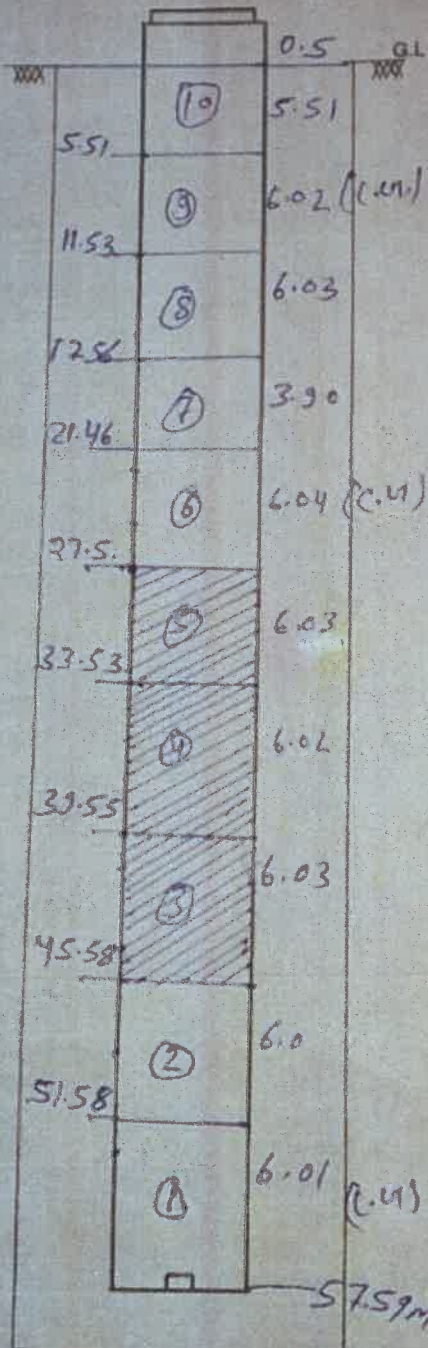 0.5 G.L
10 5.51
5.51
9 6.02
11.53
8 6.03
17.56
7 3.90
21.46
6 6.04
27.5.
5 6.03
33.53
4 6.02
39.55
3 6.03
45.58
2 6.0
51.58
1 6.01
57.59m